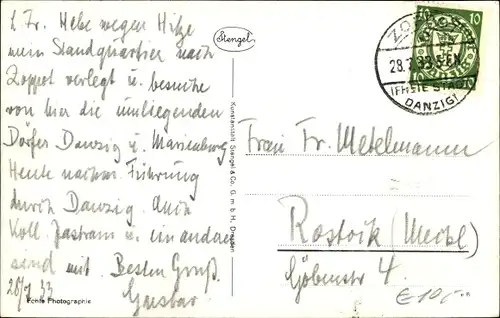 L. Fr. Habe wegen Hitze
mein Standquartier nach
Zoppot verlegt u. besuche
von hier die umliegenden
Dörfer Danzig u. Marienburg
Heute nachm. Führung
durch Danzig. Auch
Koll. Jastram u. ein anderer
sind mit. Besten Gruß.
28/7 33
Echte Photographie
Stengel
Kunstanstalt Stengel & Co. G. m. b. H. Dresden
10 10
10 10
28.7.33 5-6N
(FREIE STADT
DANZIG)
Frau Fr. Metelmann
Rostock (Meckl.)
Göbenstr 4.
€10,-